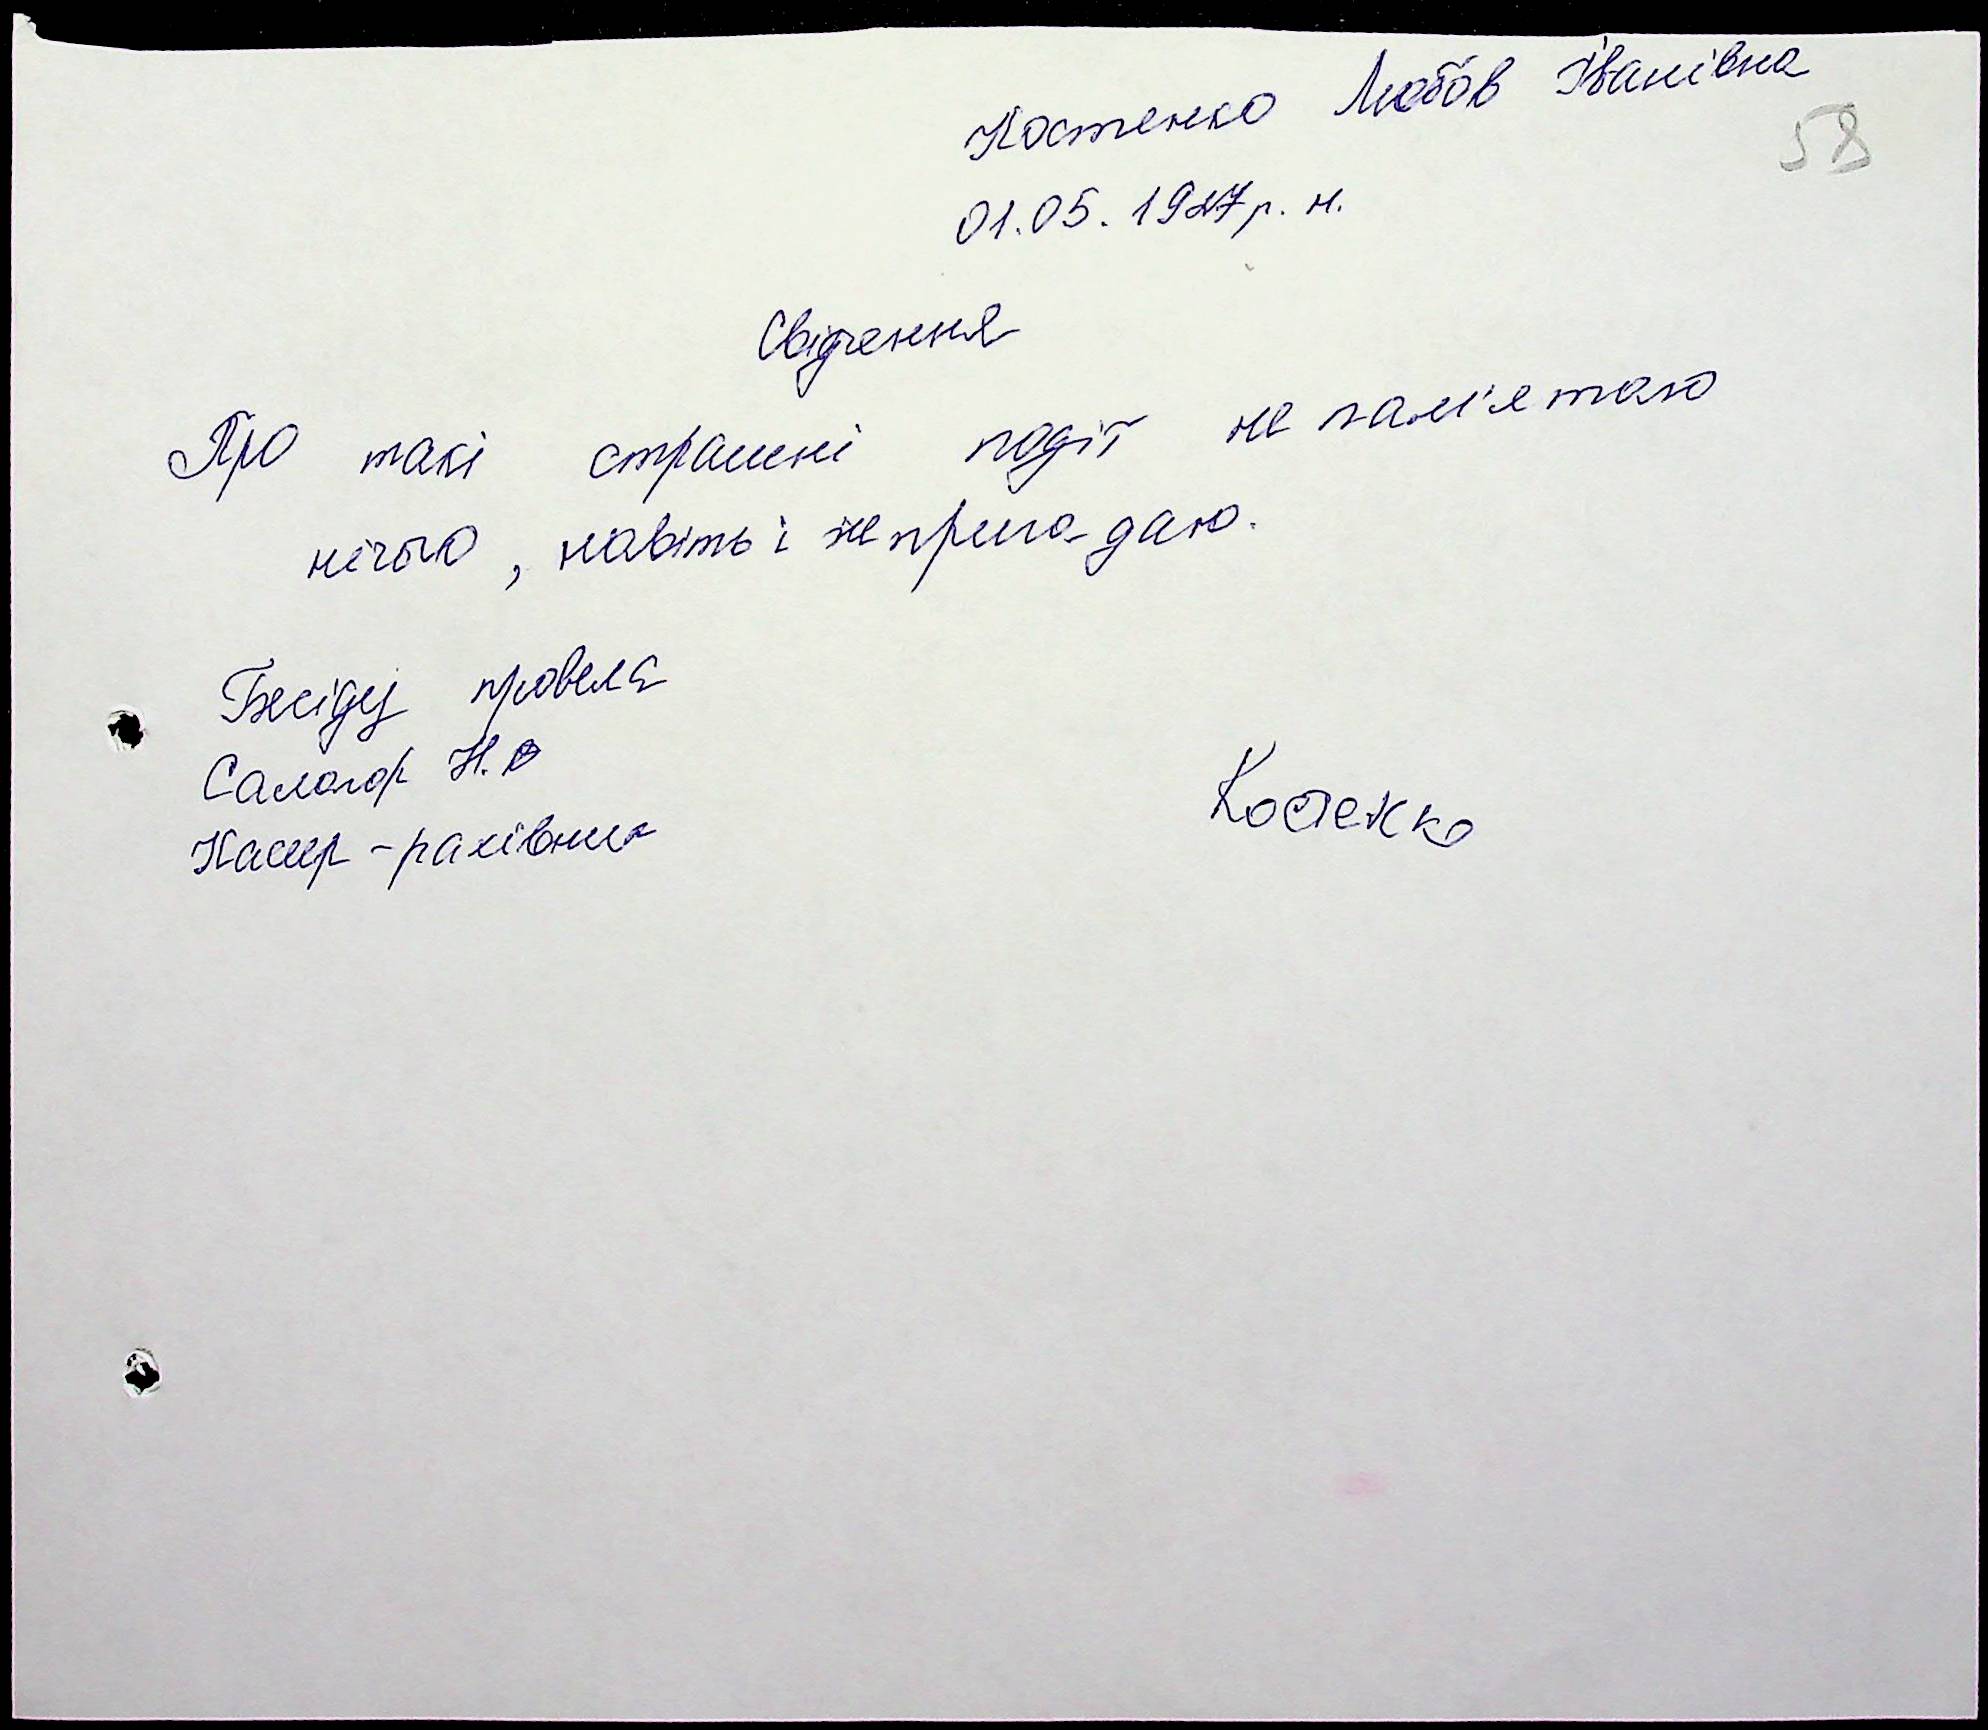 Костенко Любов Іванівна
58
01.05.1927 р. н.
Свідчення
Про такі страшні події не пам'ятаю
нічого, навіть і не пригадаю.
Бесіду провела
Салогор Н.В
Касир - рахівник
Костенко